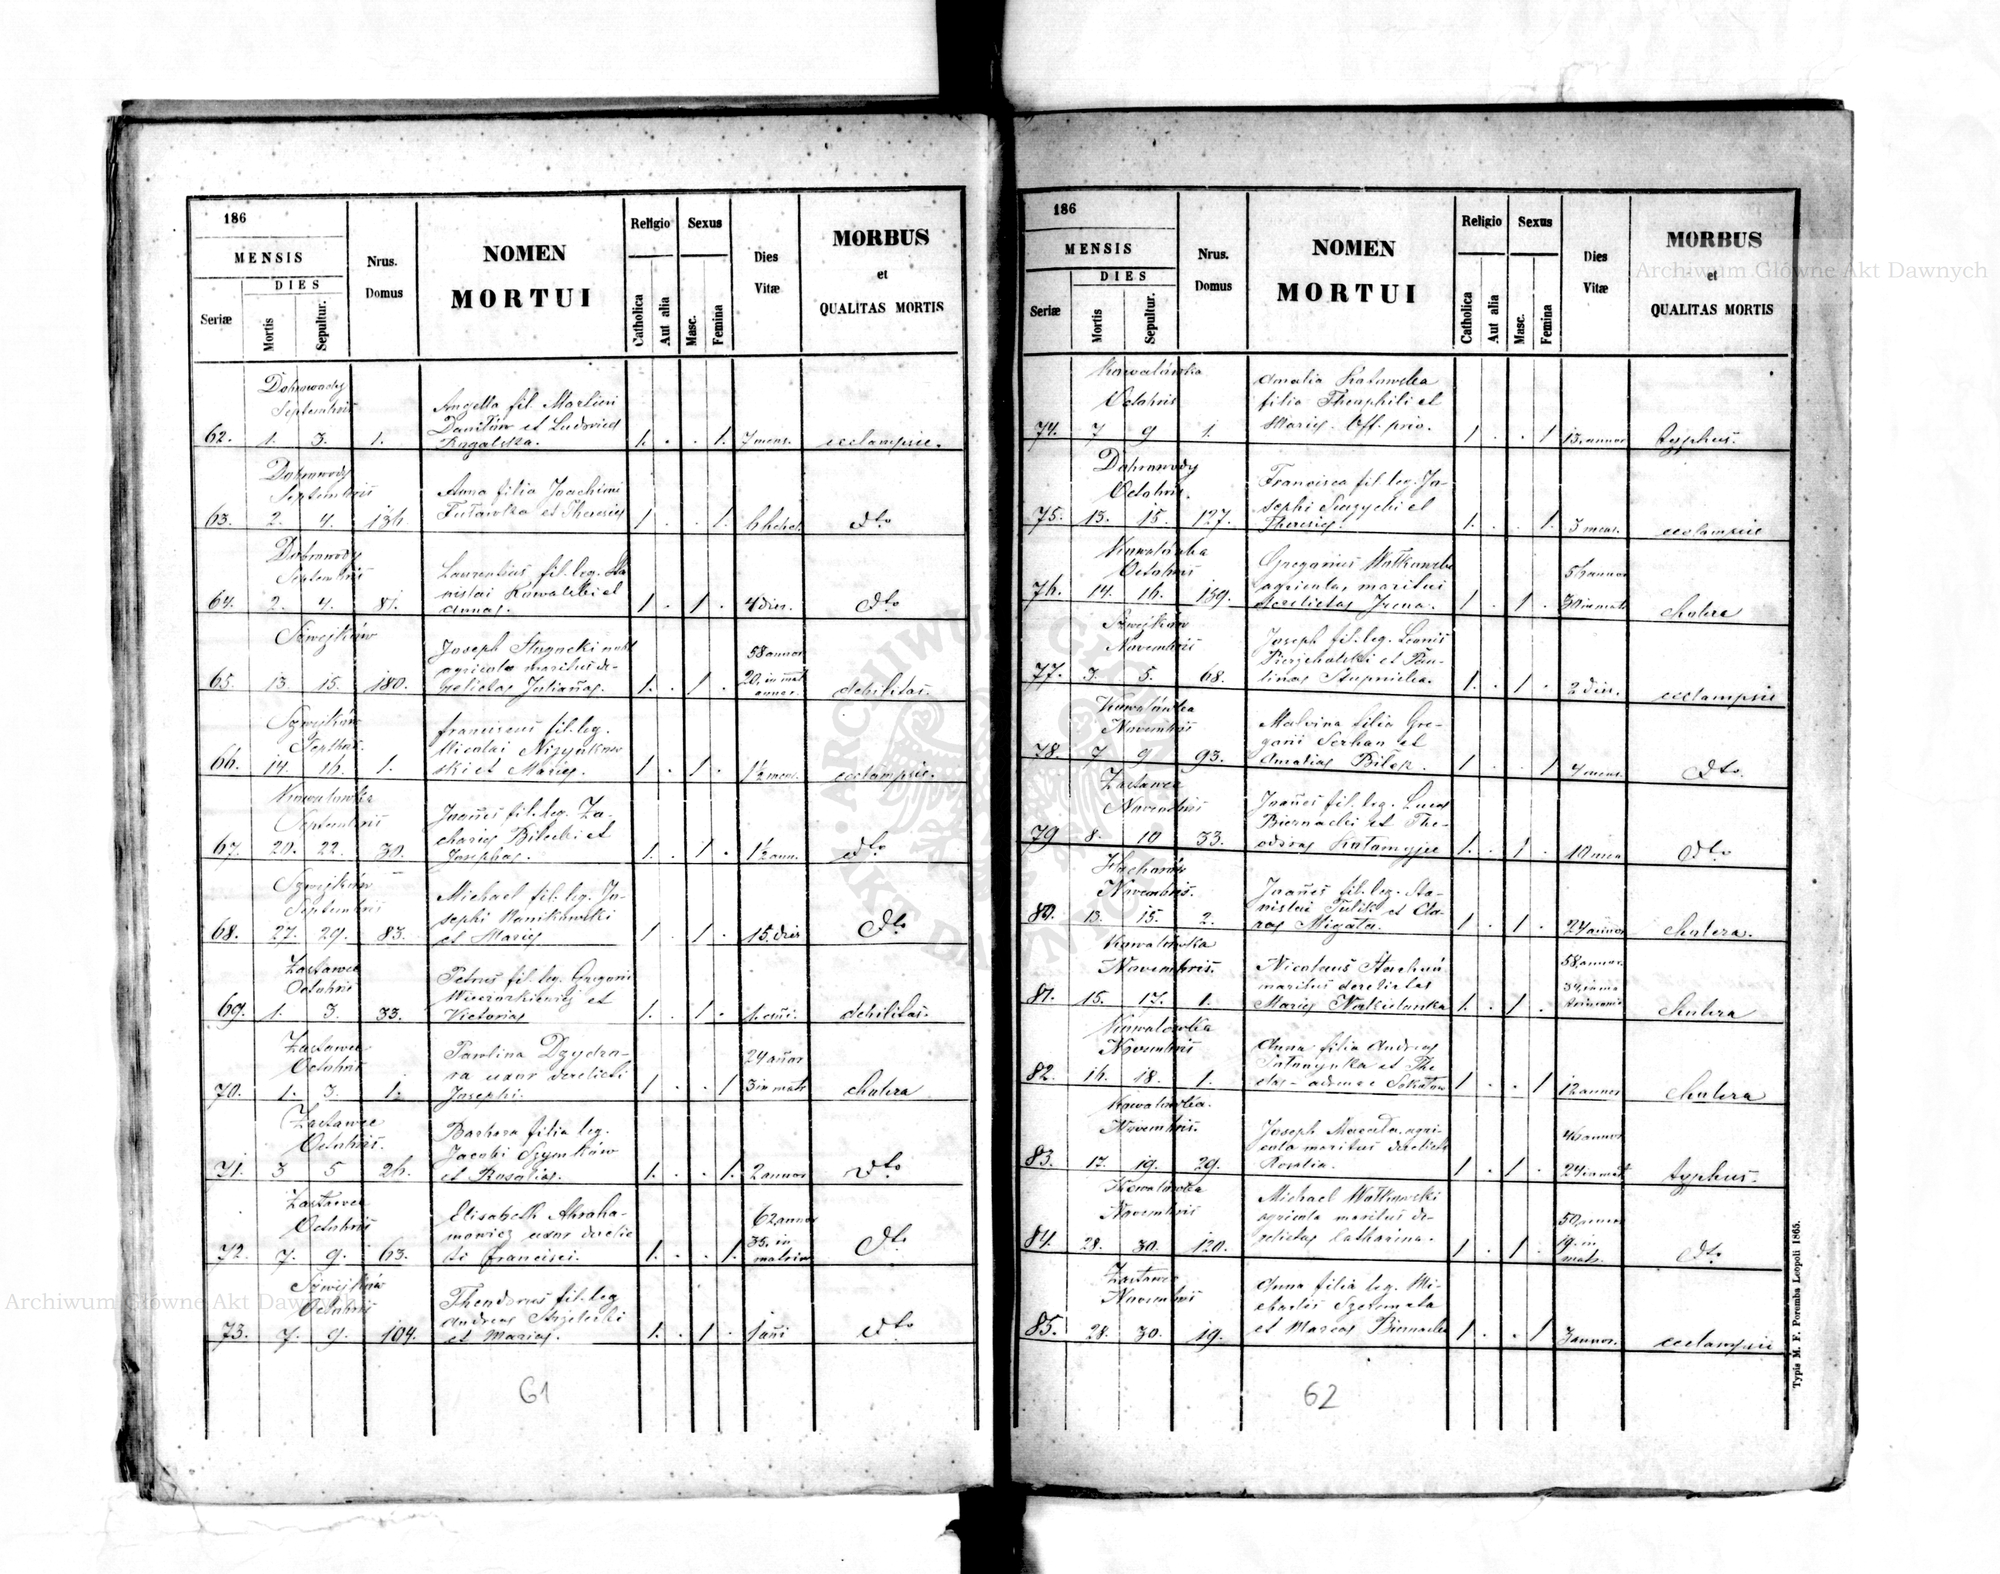 186
MENSIS
DIES
Seriæ
Mortis
Sepultur.
Nrus.
Domus
NOMEN
MORTUI
Religio
Catholica
Aut alia
Sexus
Masc.
Femina
Dies
Vitæ
MORBUS
et
QUALITAS MORTIS
Dobrowody
Septembris
62. 1. 3. 1.
Angella fil. Martini
Daniłów et Ludovica
1. . . 1. 7 mens. ecclampsie.
Dobrowody
Septembris
63. 2. 4. 136.
Anna filia Joachimi
et Theresiæ
1 . . 1. dto
Dobrowody
Septembris
64. 2. 4. 81.
Laurentius fil. leg. Sta
nislai Kowalski et
Annæ.
1. . 1 . 4 dies. dto
Szwejków
65. 13. 15. 180.
Joseph
agricola maritus de-
relictæ Juliañæ.
1. . 1 . 58 annor
20. in mat
debilitas.
Szwejków
Septbris.
66. 14. 16. 1.
Franciscus fil. leg.
Nicolai
ski et Mariæ.
1 . 1 . 1½ mens. ecclampsie.
Kowalówka
Septembris
67. 20. 22. 30.
Joañes fil. leg. Za-
chariæ Bilecki et
Josephæ.
1. . 1 . 1½ ann. dto
Szwejków
Septembris
68. 27. 29. 83.
Michael fil. leg. Jo-
sephi
et Mariæ
1 . 1 . 15. dies dto
Zastawce
Octobris
69. 1. 3. 33.
Petrus fil. leg. Gregorii
Wieczorkiewicz et
Victoriæ
1. . 1 . 1. añi. debilitas.
Zastawce
Octobris
70. 1. 3. 1.
Pawlina
ra uxor derelicti
Josephi.
1 . . 1 24 añor
3 in matr
cholera
Zastawce
Octobris.
71. 3 5 26.
Barbara filia leg.
Jacobi Szymków
et Rosaliæ.
1. . . 1. 2 annor dto
Zastawce
Octobris
72. 7. 9. 63.
Elisabeth Abraha-
mowicz uxor derelic
ti Francisci.
1. . . 1. 62 annor
35. in
matrim
dto
Szwejków
Octobris
73. 7. 9. 104.
Theodorus fil. leg
Andreæ Strzelecki
et Mariæ.
1. . 1 . 1 añi dto
61
186
MENSIS
DIES
Seriæ
Mortis
Sepultur.
Nrus.
Domus
NOMEN
MORTUI
Religio
Catholica
Aut alia
Sexus
Masc.
Femina
Dies
Vitæ
MORBUS
et
QUALITAS MORTIS
Kowalówka
Octobris
74. 7 9 1.
Amalia
filia Theophili et
Mariæ. Off. priv.
1 . . 1 13. annor typhus.
Dobrowody
Octobris.
75. 13. 15. 127.
Francisca fil. leg. Jo-
sephi et
Theresiæ.
1. . . 1. 3 mens. ecclampsie
Kowalówka
Octobris
76. 14. 16. 159.
Gregorius Wółkowski
agricola, maritus
derelictæ Irena.
1 . 1 . 56 annor
30 in matr
cholera
Szwejków
Novembris
77. 3. 5. 68.
Joseph fil. leg. Leonis
et Pau-
linæ Stupnicka.
1. . 1 . 2 dies. ecclampsie
Kowalówka
Novembris
78. 7 9 93.
Malvina filia Gre-
gorii Serhan et
Amaliæ Bilek.
1 . . 1 4 mens. dto
Zastawce
Novembris
79 8. 10 33.
Joañes fil. leg. Lucæ
Biernacki et The-
odoræ
1. . 1 . 10 mens dto
Novembris.
80. 13. 15. 2.
Joañes fil. leg. Sta-
nislai Tulik et Cla-
ræ Migata.
1 . 1 . 24 annor cholera.
Kowalówka
Novembris.
81. 15. 17. 1.
Nicolaus
maritus derelictæ
Mariæ
1. . 1 . 58. annor.
cholera
Kowalówka
Novembris
82. 16. 18. 1.
Anna filia Andreæ
et The
1 . . 1 12 annor cholera
Kowalówka.
Novembris.
83. 17. 19. 29.
Joseph agri-
cola maritus derelictæ
Rosalia.
1 . 1 . 46 annor
24 in mat
typhus.
Kowalówka
Novembris
84. 28. 30. 120.
Michael Wółkowski
agricola maritus de-
relictæ Catharina.
1 . 1 . 50 annor
19. in
matr.
dto
Zastawce
Novembris
85. 28. 30. 19.
Anna filia leg. Mi-
chaelis Szeremeta
et Mariæ Biernacka
1 . . 1 3 annor. ecclampsie
62
Typis M. F. Poremba Leopoli 1865.
Archiwum Główne Akt Dawnych
Archiwum Główne Akt Dawnych
ARCHIWUM GŁÓWNE AKT DAWNYCH